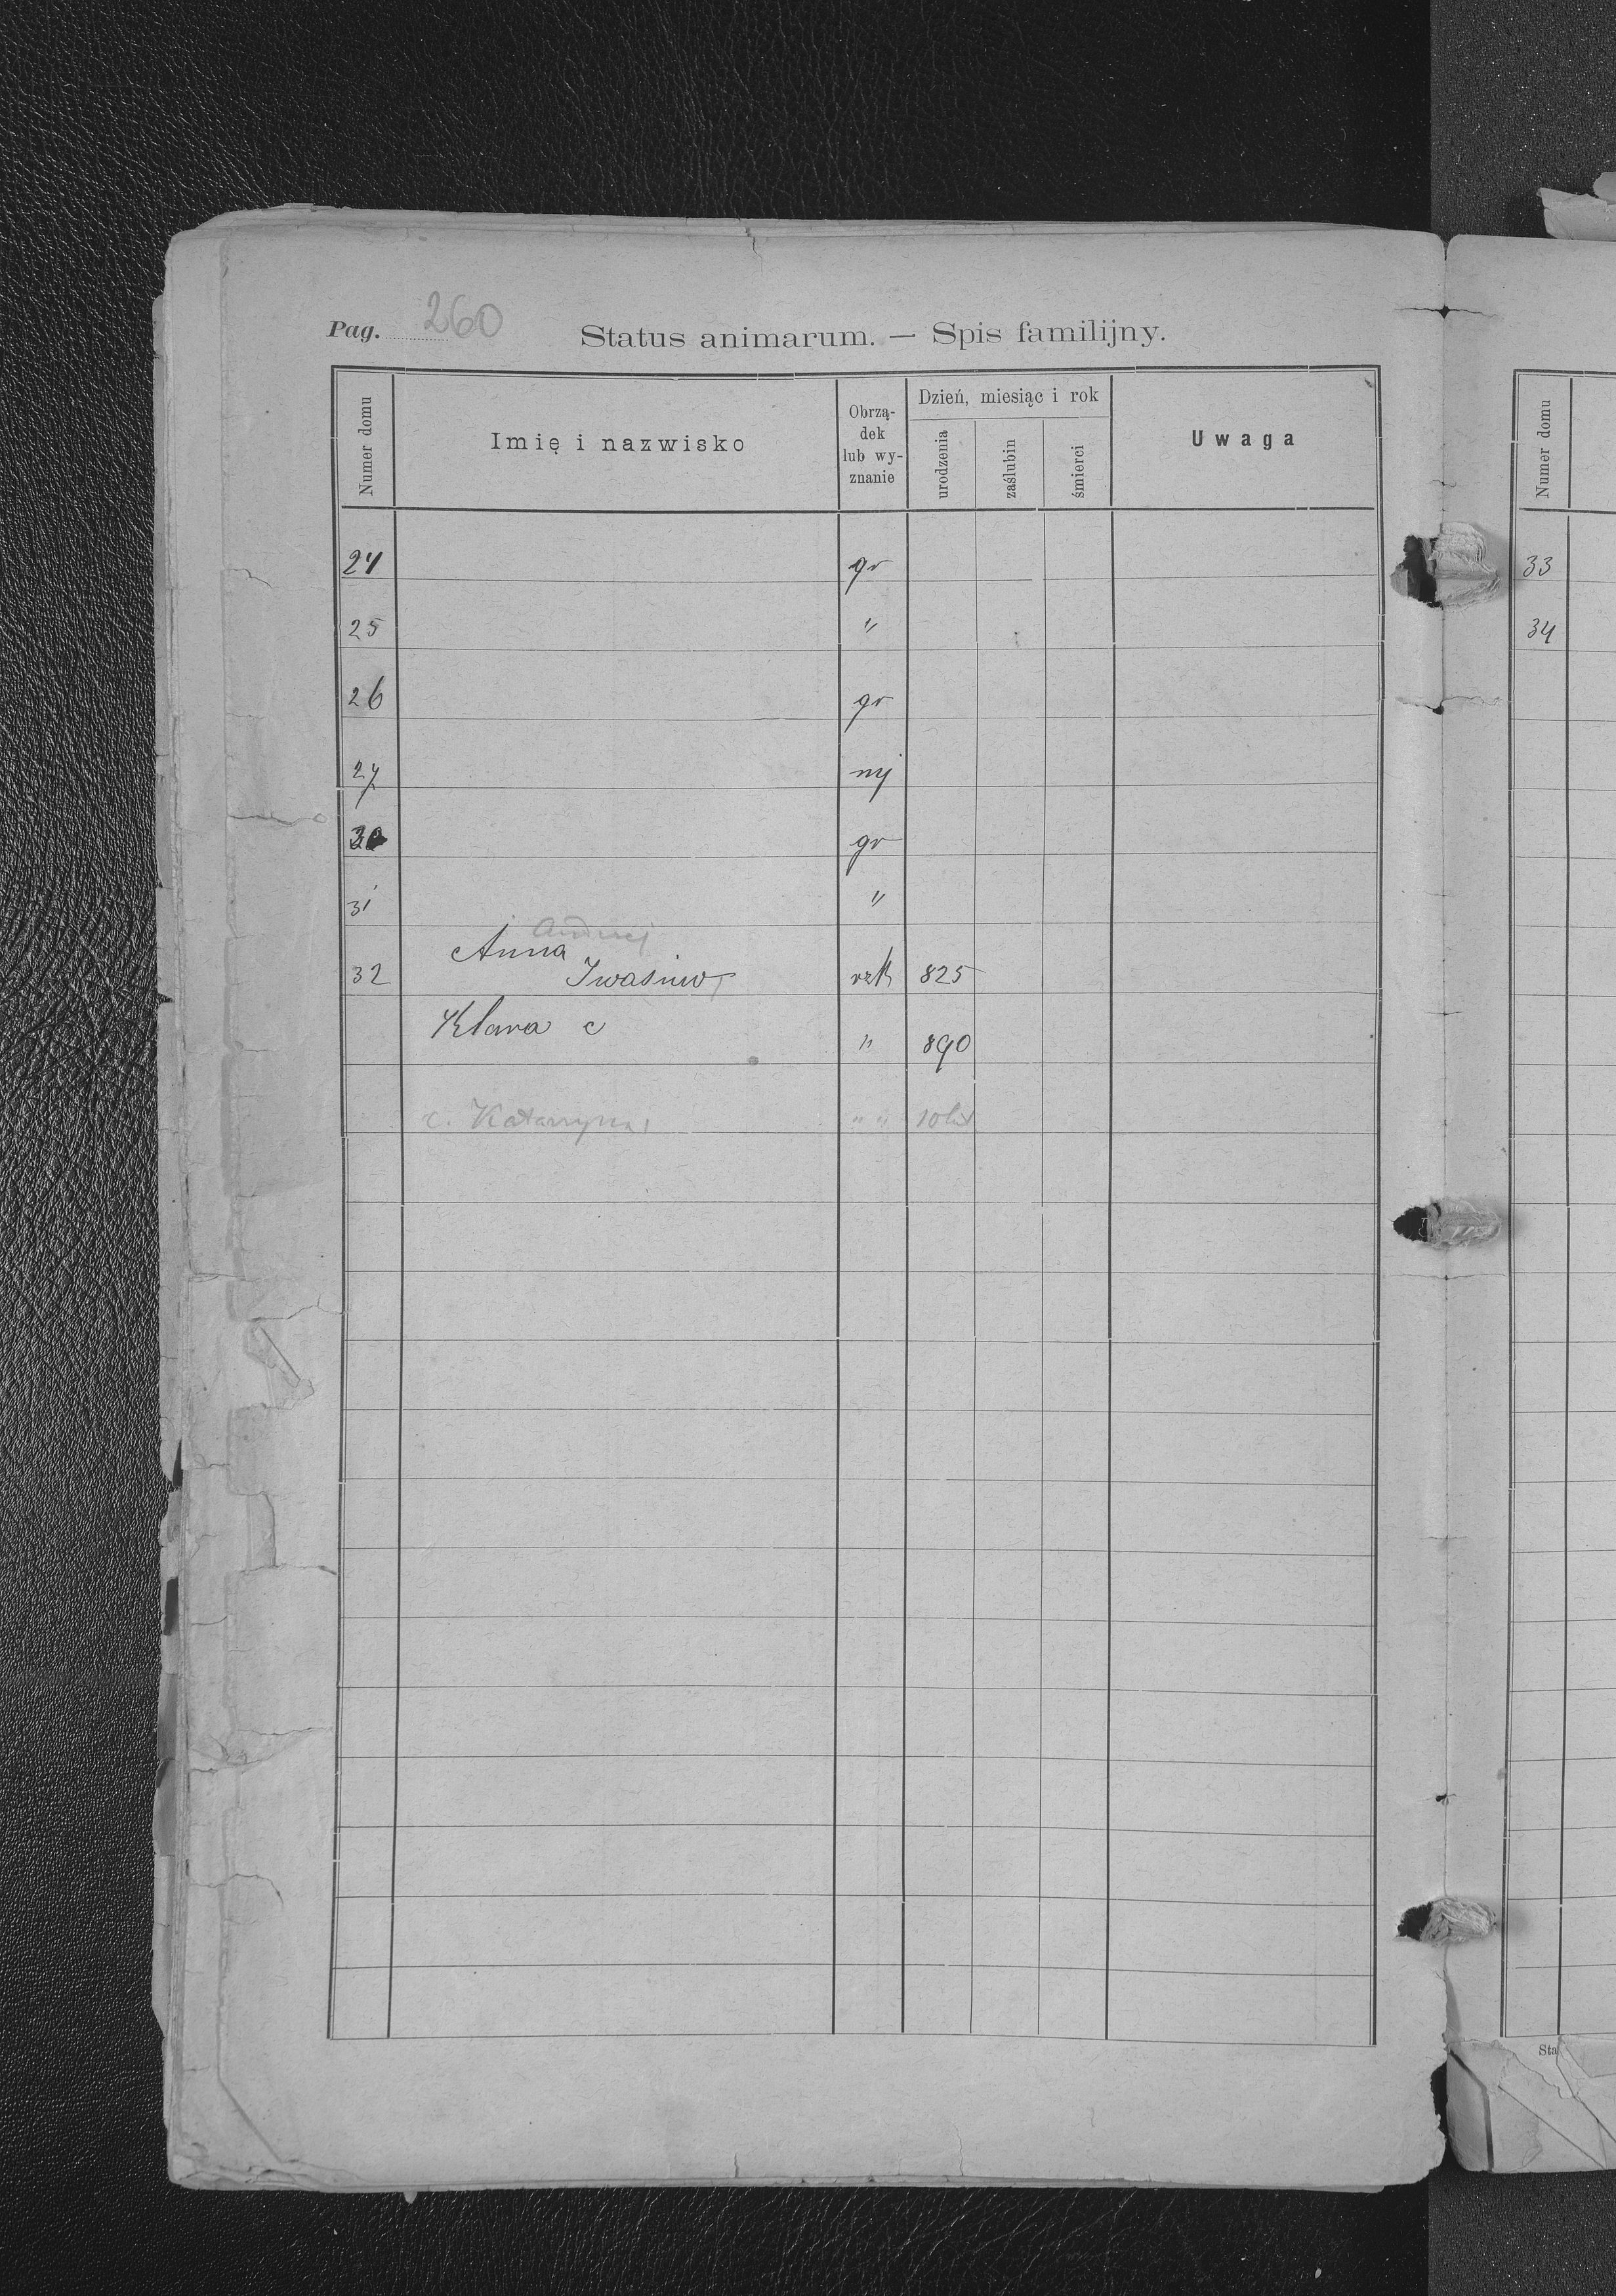 Pag. 260
Status animarum. — Spis familijny.
Numer domu
Imię i nazwisko
Obrzą-
dek
lub wy-
znanie
Dzień, miesiąc i rok
urodzenia
zaślubin
śmierci
Uwaga
Numer domu
24 gr
25 "
26 gr
27
30 gr
31 "
Andrzej
Anna
32 Iwasiuw rzk 825
Klara c " 890
c. Katarzyna " " 10 lat
33
34
Sta